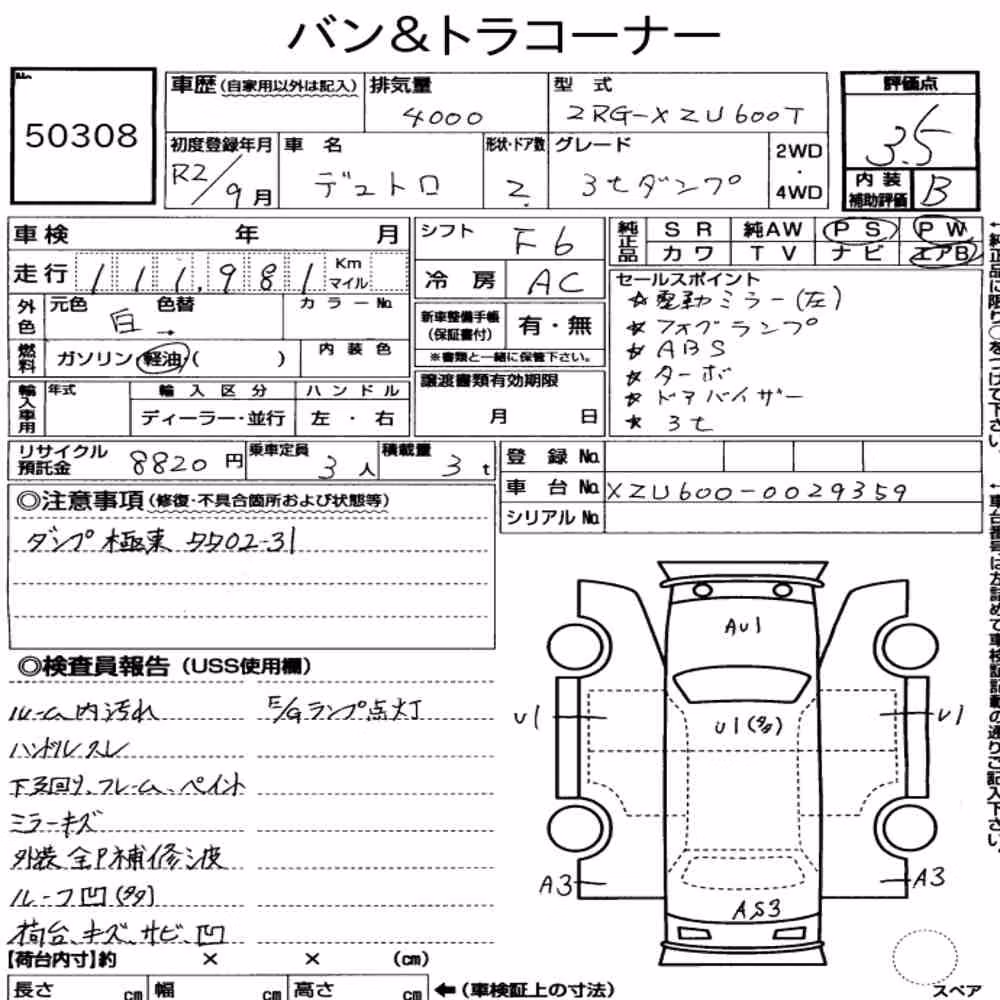 バン&トラコーナー
50308
車歴(自家用以外は記入) 排気量 型 式 評価点
4000 2RG-XZU600T 3.5
初度登録年月 車 名 形状・ドア数 グレード 2WD・4WD
R2/9月 デュトロ 2. 3tダンプ
内装補助評価 B
車検 年 月 シフト F6
純正品 SR 純AW PS PW
カワ TV ナビ エアB
走行 111,981 Km マイル 冷房 AC
セールスポイント
☆電動ミラー(左)
☆フォグランプ
☆ABS
☆ターボ
☆ドアバイザー
☆3t
外色 元色 白→ 色替 カラーNo.
新車整備手帳(保証書付) 有・無
※書類と一緒に保管下さい。
燃料 ガソリン・軽油・( ) 内装色
輸入車用 年式 輸入区分 ハンドル
ディーラー・並行 左・右
譲渡書類有効期限
月 日
リサイクル預託金 8820円 乗車定員 3人 積載量 3t
登録No.
車台No. XZU600-0029359
シリアルNo.
◎注意事項(修復・不具合箇所および状態等)
ダンプ 極東 5502-31
◎検査員報告(USS使用欄)
ルーム内汚れ E/Gランプ点灯
ハンドルスレ
下廻り、フレーム、ペイント
ミラーキズ
外装全P補修シ皮
ルーフ凹(タタ)
荷台、キズ、サビ、凹
【荷台内寸】約 × × (cm)
長さ cm 幅 cm 高さ cm ←(車検証上の寸法)
AU1
U1
U1(タタ)
U1
A3
A3
AS3
スペア
↑純正品に限り○をつけて下さい。
↑車台番号は左詰めで車検証記載の通りご記入下さい。